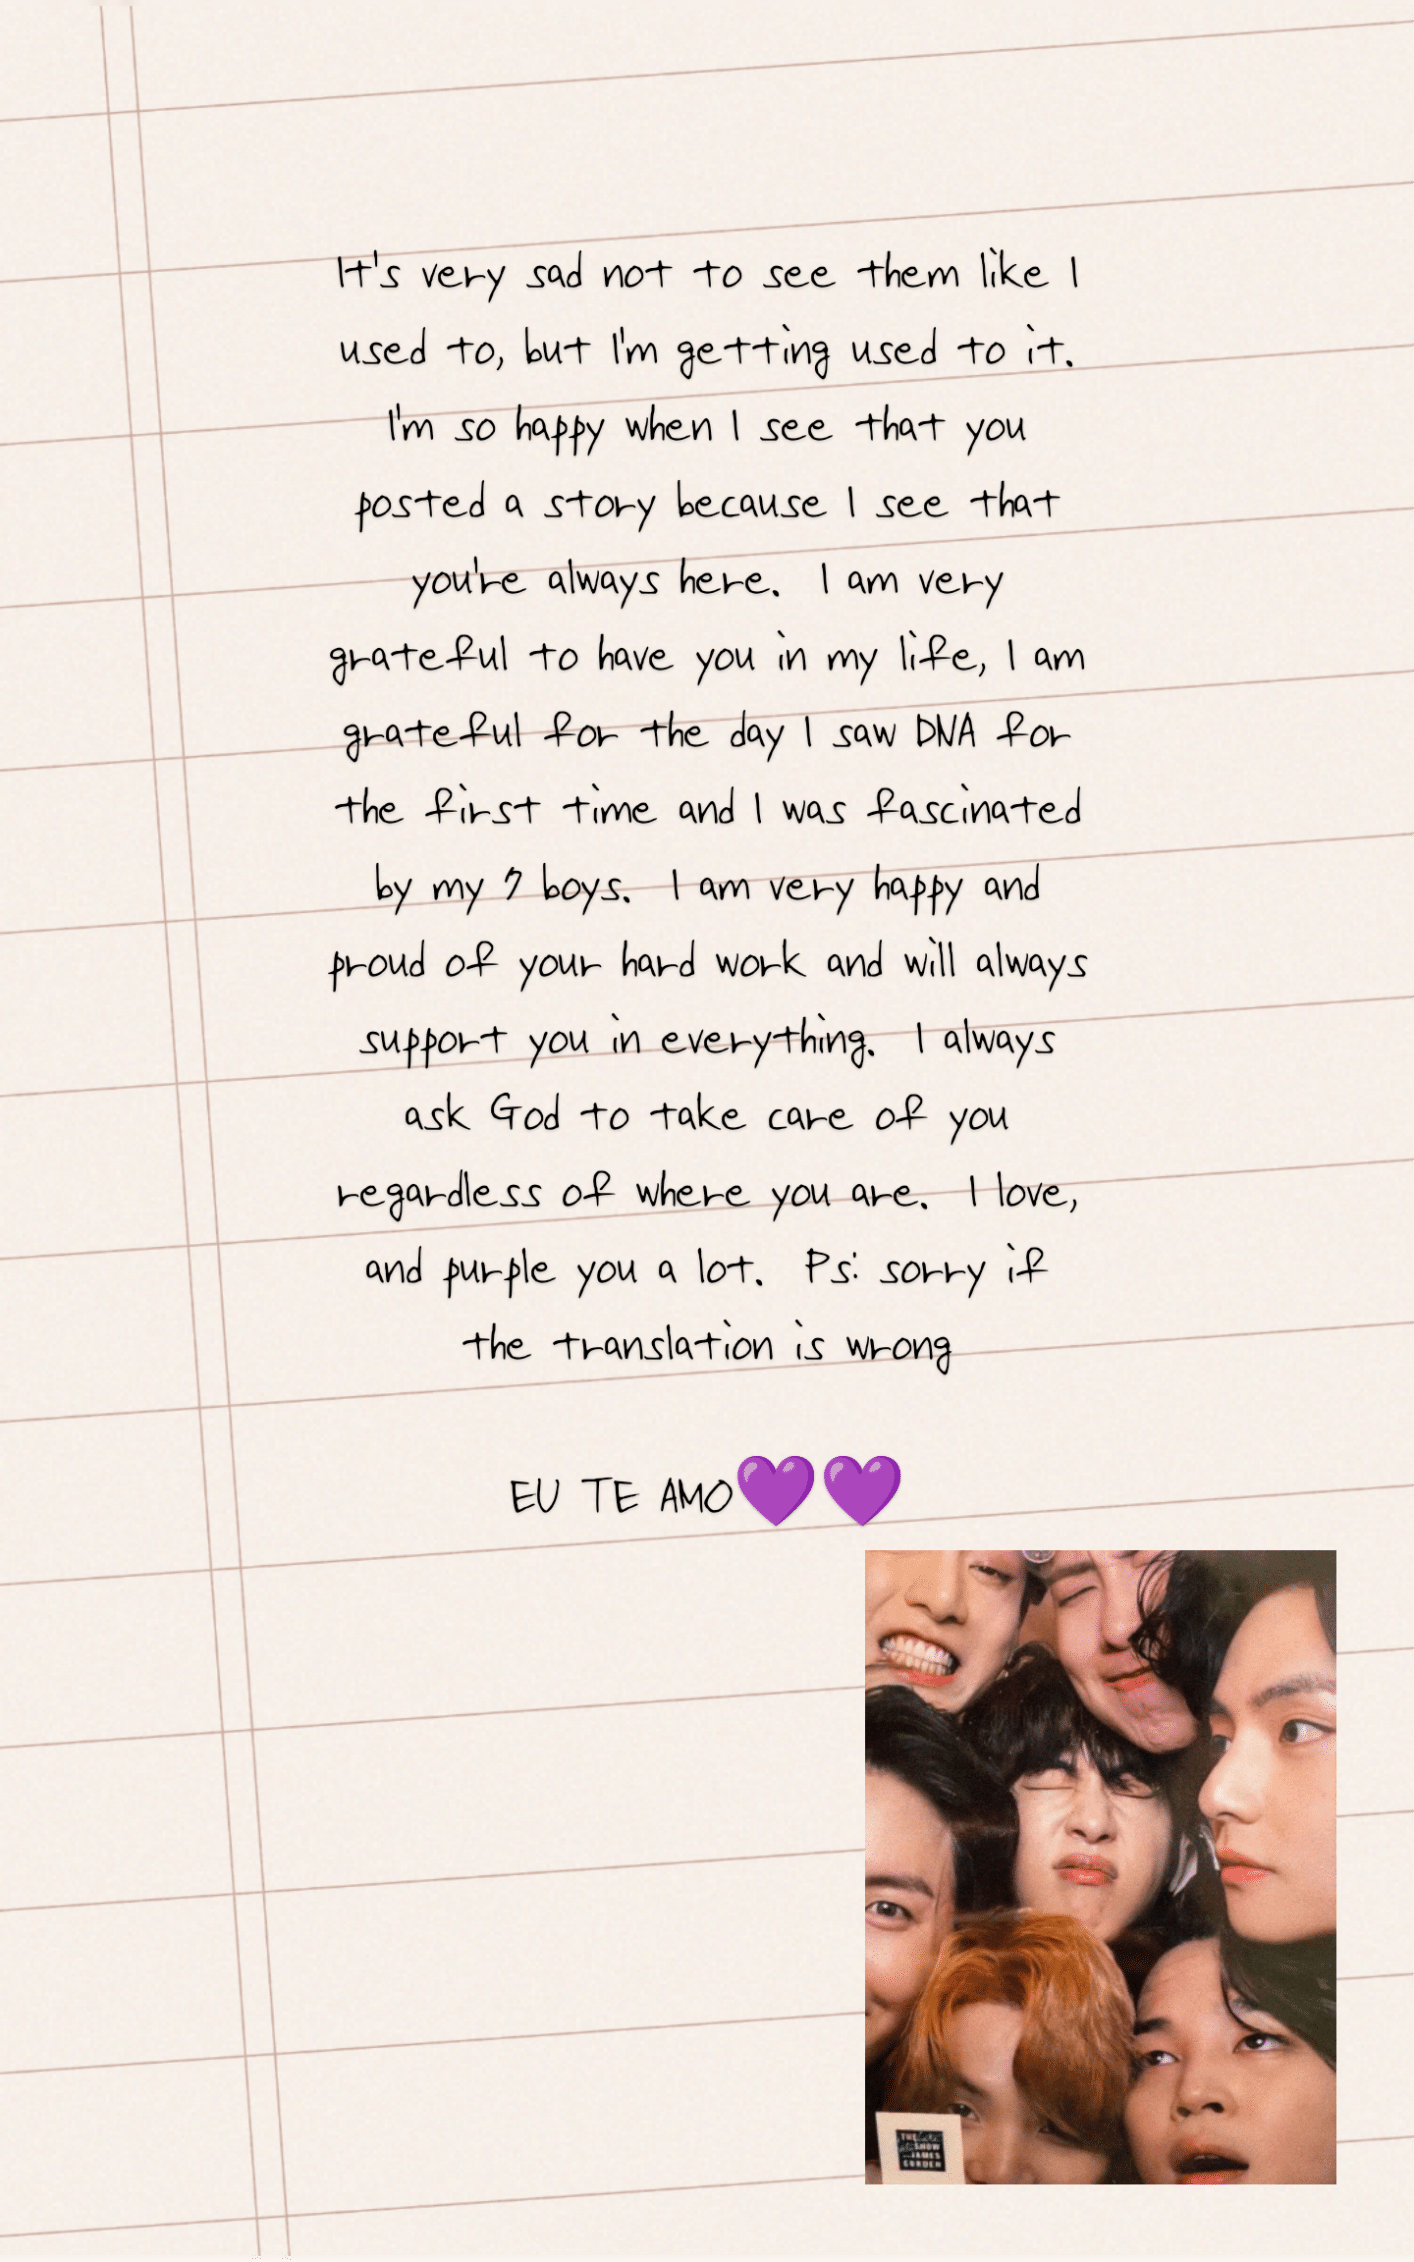 It's very sad not to see them like I
used to, but I'm getting used to it.
I'm so happy when I see that you
posted a story because I see that
you're always here.  I am very
grateful to have you in my life, I am
grateful for the day I saw DNA for
the first time and I was fascinated
by my 7 boys.  I am very happy and
proud of your hard work and will always
support you in everything.  I always
ask God to take care of you
regardless of where you are.  I love,
and purple you a lot.  Ps: sorry if
the translation is wrong
EU TE AMO💜💜
THE
SHOW
JAMES
CORDEN